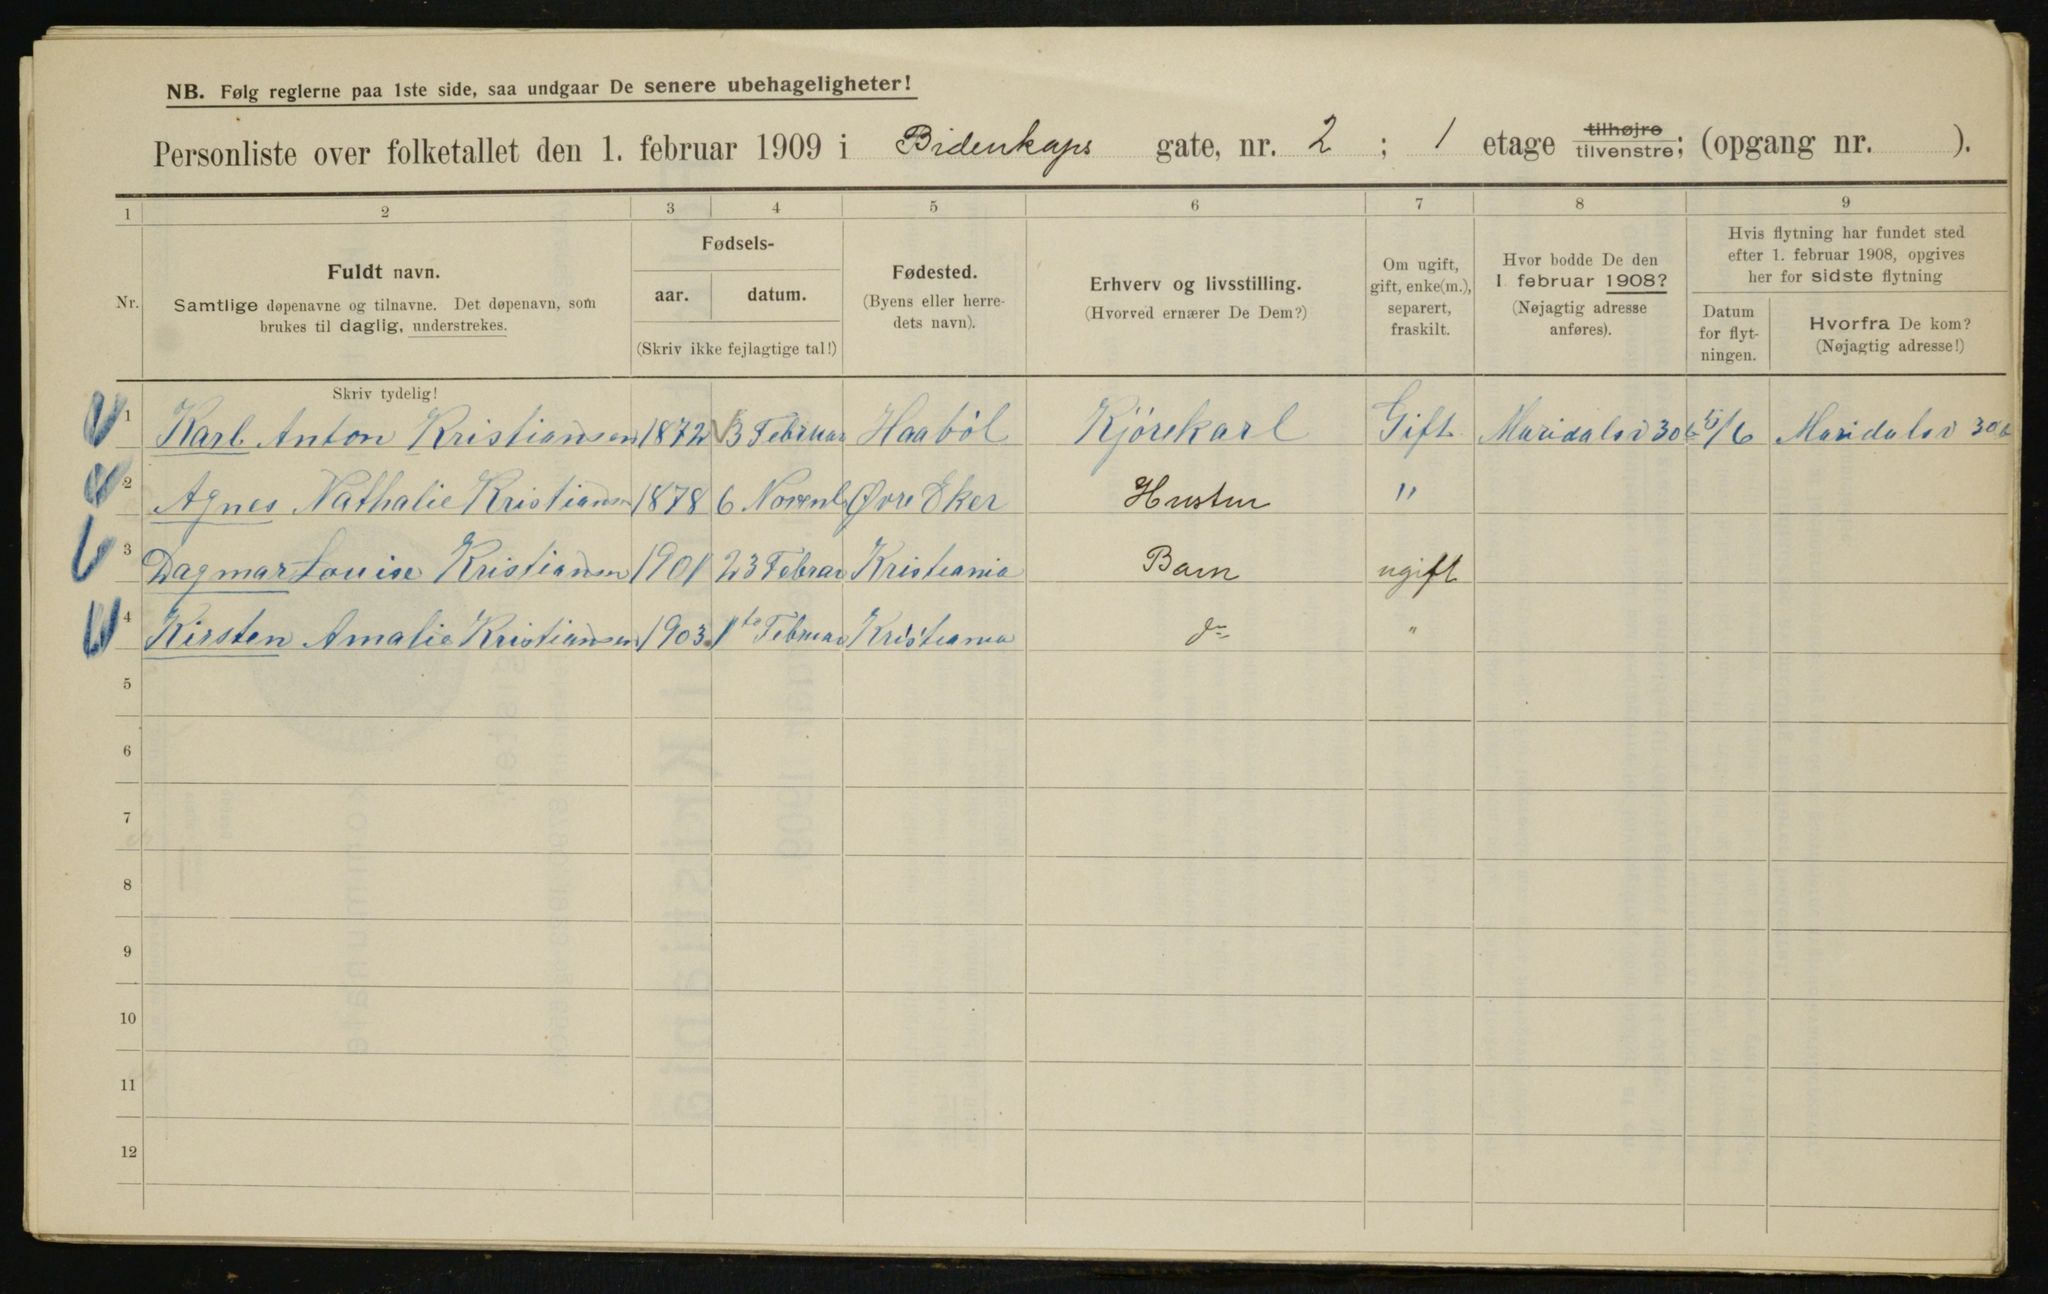 NB. Følg reglerne paa 1ste side, saa undgaar De senere ubehageligheter!
Personliste over folketallet den 1. februar 1909 i Bidenkaps gate, nr. 2 ; 1 etage tilhøjre tilvenstre; (opgang nr. ).
1 2 3 4 5 6 7 8 9
Nr.
Fuldt navn.
Samtlige døpenavne og tilnavne. Det døpenavn, som
brukes til daglig, understrekes.
Fødsels-
aar. datum.
(Skriv ikke fejlagtige tal!)
Fødested.
(Byens eller herre-
dets navn).
Erhverv og livsstilling.
(Hvorved ernærer De Dem?)
Om ugift,
gift, enke(m.),
separert,
fraskilt.
Hvor bodde De den
1. februar 1908?
(Nøjagtig adresse
anføres).
Hvis flytning har fundet sted
efter 1. februar 1908, opgives
her for sidste flytning
Datum
for flyt-
ningen.
Hvorfra De kom?
(Nøjagtig adresse!)
Skriv tydelig!
1 Karl Anton Kristiansen 1872 3 Februar Haabøl Kjørekarl Gift Maridalsv 30 Maridalsv 30
2 Agnes Nathalie Kristiansen 1878 6 Novenb Øvre Eker Hustru "
3 Dagmar Louise Kristiansen 1901 23 Februar Kristiania Barn ugift
4 Kirsten Amalie Kristiansen 1903 1ste Februar Kristiania do "
5
6
7
8
9
10
11
12